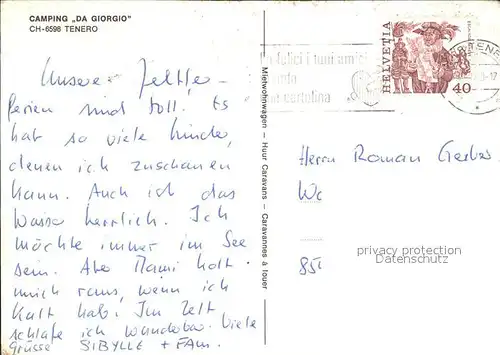 CAMPING „DA GIORGIO"
CH-6598 TENERO
Unsere Zeltfe-
rien sind toll. Es
hat so viele Kinder,
denen ich zuschauen
kann. Auch ist das
Wasser herrlich. Ich
möchte immer im See
sein. Aber Mami holt
mich raus, wenn ich
kalt hab. Im Zelt
schlafe ich wunderbar. Viele
Grüsse SIBYLLE + FAm.
Mietwohnwagen – Huur Caravans – Caravannes à louer
felici i tuoi amici
cartolina
HELVETIA
40
Herrn Roman Gerber
privacy protection
Datenschutz